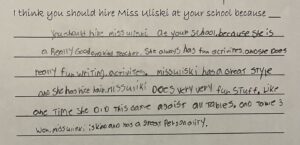 I think you should hire Miss Uliski at your school because
You should hire miss uliski at your school, because she is
a really good and kind teacher. She always has fun activites. and she Does
really fun writing activites. miss uliski has a great style
and she has nice hair. miss uliski DOES very very fun stuff. Like
one time she DiD this game against all tables, and table 3
won. miss uliski is kind and has a great Personality.